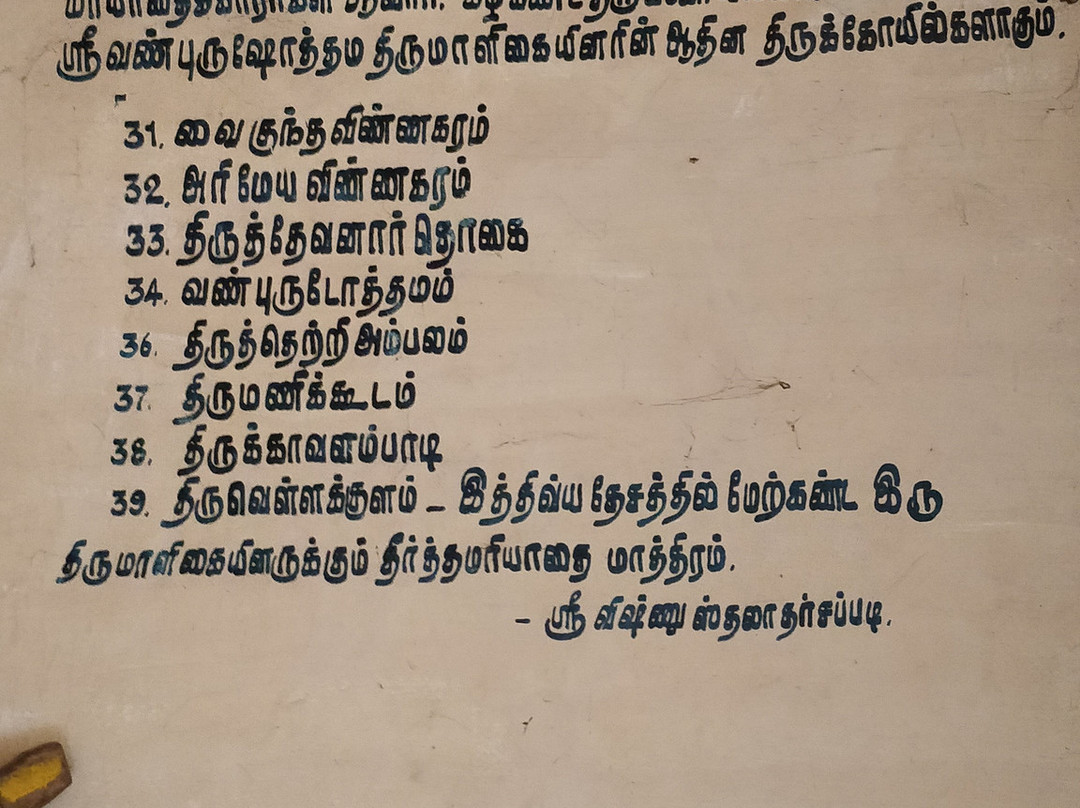 ஸ்ரீ வண் புருஷோத்தம திருமாளிகையினரின் ஆதின திருக்கோயில்களாகும்.
31. வைகுந்த விண்ணகரம்
32. அரிமேய விண்ணகரம்
33. திருத்தேவனார் தொகை
34. வண் புருடோத்தமம்
36. திருத்தெற்றி அம்பலம்
37. திருமணிக்கூடம்
38. திருக்காவளம்பாடி
39. திருவெள்ளக்குளம் – இத்திவ்ய தேசத்தில் மேற்கண்ட இரு
திருமாளிகையினருக்கும் தீர்த்தமரியாதை மாத்திரம்.
– ஸ்ரீ விஷ்ணு ஸ்தலாதர்சப்படி.